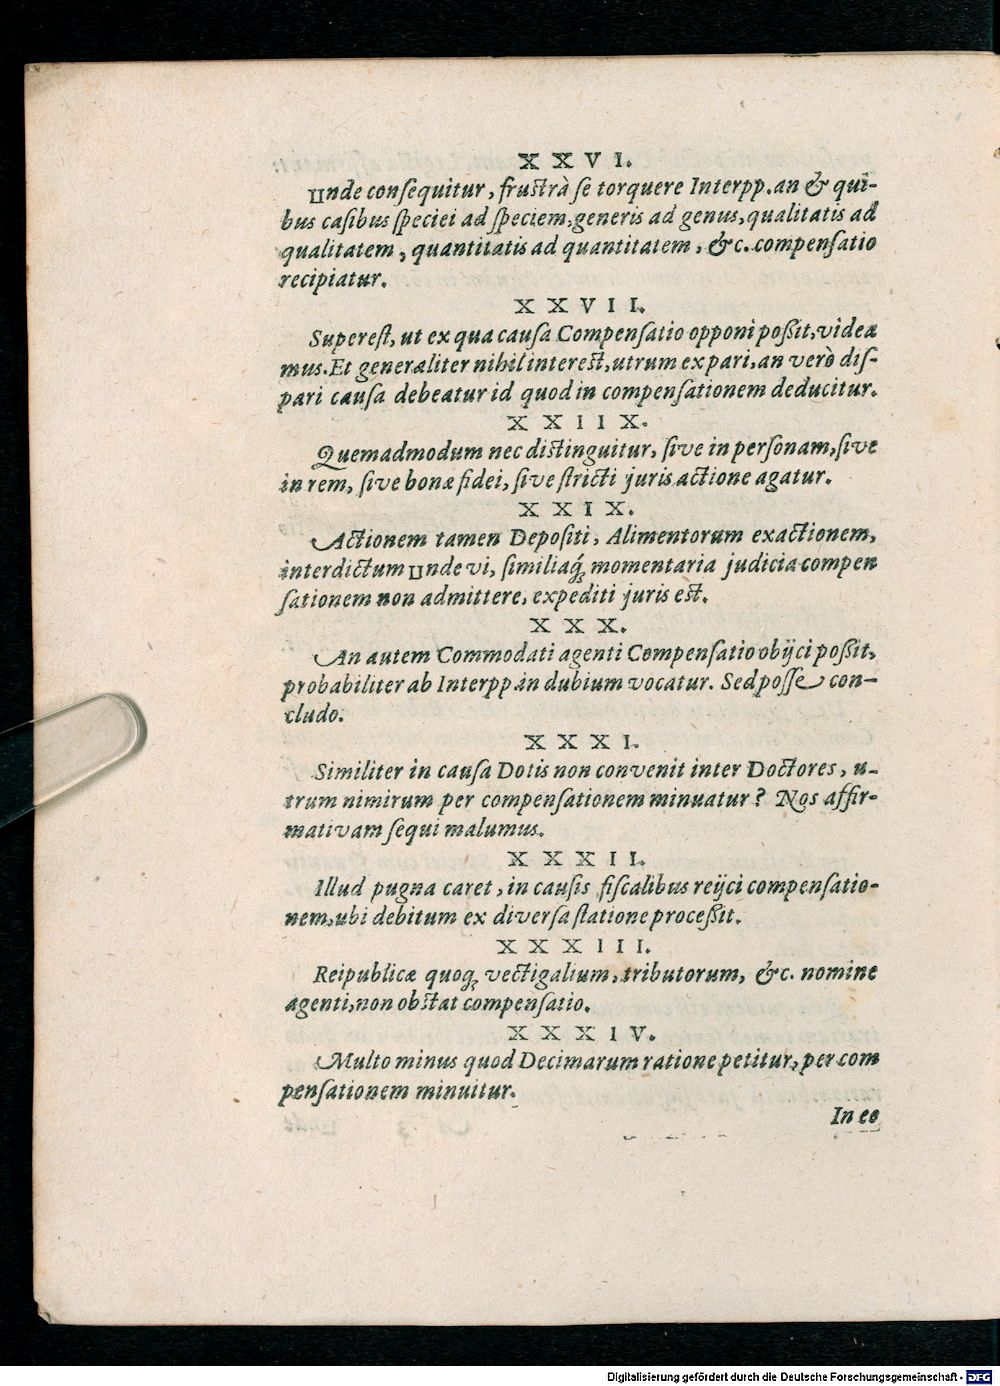 XXVI.
Unde consequitur, frustrà se torquere Interpp. an & qui-
bus casibus speciei ad speciem, generis ad genus, qualitatis ad
qualitatem, quantitatis ad quantitatem, &c. compensatio
recipiatur.
XXVII.
Superest, ut ex qua causa Compensatio opponi poßit, videa
mus. Et generaliter nihil interest, utrum ex pari, an verò dis-
pari causa debeatur id quod in compensationem deducitur.
XXIIX.
Quemadmodum nec distinguitur, sive in personam, sive
in rem, sive bonæ fidei, sive stricti juris actione agatur.
XXIX.
Actionem tamen Depositi, Alimentorum exactionem,
interdictum Unde vi, similiaq́; momentaria judicia compen
sationem non admittere, expediti juris est.
XXX.
An autem Commodati agenti Compensatio obijci poßit,
probabiliter ab Interpp. in dubium vocatur. Sed posse con-
cludo.
XXXI.
Similiter in causa Dotis non convenit inter Doctores, u-
trum nimirum per compensationem minuatur? Nos affir-
mativam sequi malumus.
XXXII.
Illud pugna caret, in causis fiscalibus reijci compensatio-
nem, ubi debitum ex diversa statione proceßit.
XXXIII.
Reipublicæ quoq; vectigalium, tributorum, &c. nomine
agenti, non obstat compensatio.
XXXIV.
Multo minus quod Decimarum ratione petitur, per com
pensationem minuitur.
In eo
Digitalisierung gefördert durch die Deutsche Forschungsgemeinschaft - DFG